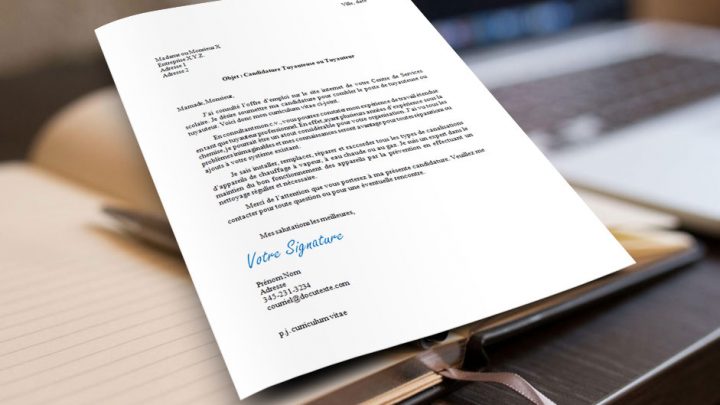 Ville, date
Madame ou Monsieur X
Entreprise X.Y.Z.
Adresse 1
Adresse 2
Objet : Candidature Tuyauteuse ou Tuyauteur
Mamade, Monsieur,
J'ai consulté l'offre d'emploi sur le site internet de votre Centre de Services
scolaire. Je désire soumettre ma candidature pour combler le poste de tuyauteuse ou
tuyauteur. Voici donc mon curriculum vitae ci-joint.
En consultant mon c.v., vous pourrez constater mon expérience de travail étendue
en tant que tuyauteur professionnel. En effet, ayant plusieurs années d'expérience sous la
chemise, je pourrait être un atout considérable pour votre organisation. J'ai vu tous les
problèmes inimaginables et mes connaissances seront avantage pour toutes réparations ou
ajouts à votre système existant.
Je sais installer, remplacer, réparer et raccorder tous les types de canalisations
d'appareils de chauffage à vapeur, à eau chaude ou au gaz. Je suis un expert dans le
maintien du bon fonctionnement des appareils par la prévention en effectuant un
nettoyage régulier et nécessaire.
Merci de l'attention que vous porterez à ma présente candidature. Veuillez me
contacter pour toute question ou pour une éventuelle rencontre.
Mes salutations les meilleures,
Votre Signature
Prénom Nom
Adresse
345-231-3234
courriel@docutexte.com
p.j. curriculum vitae